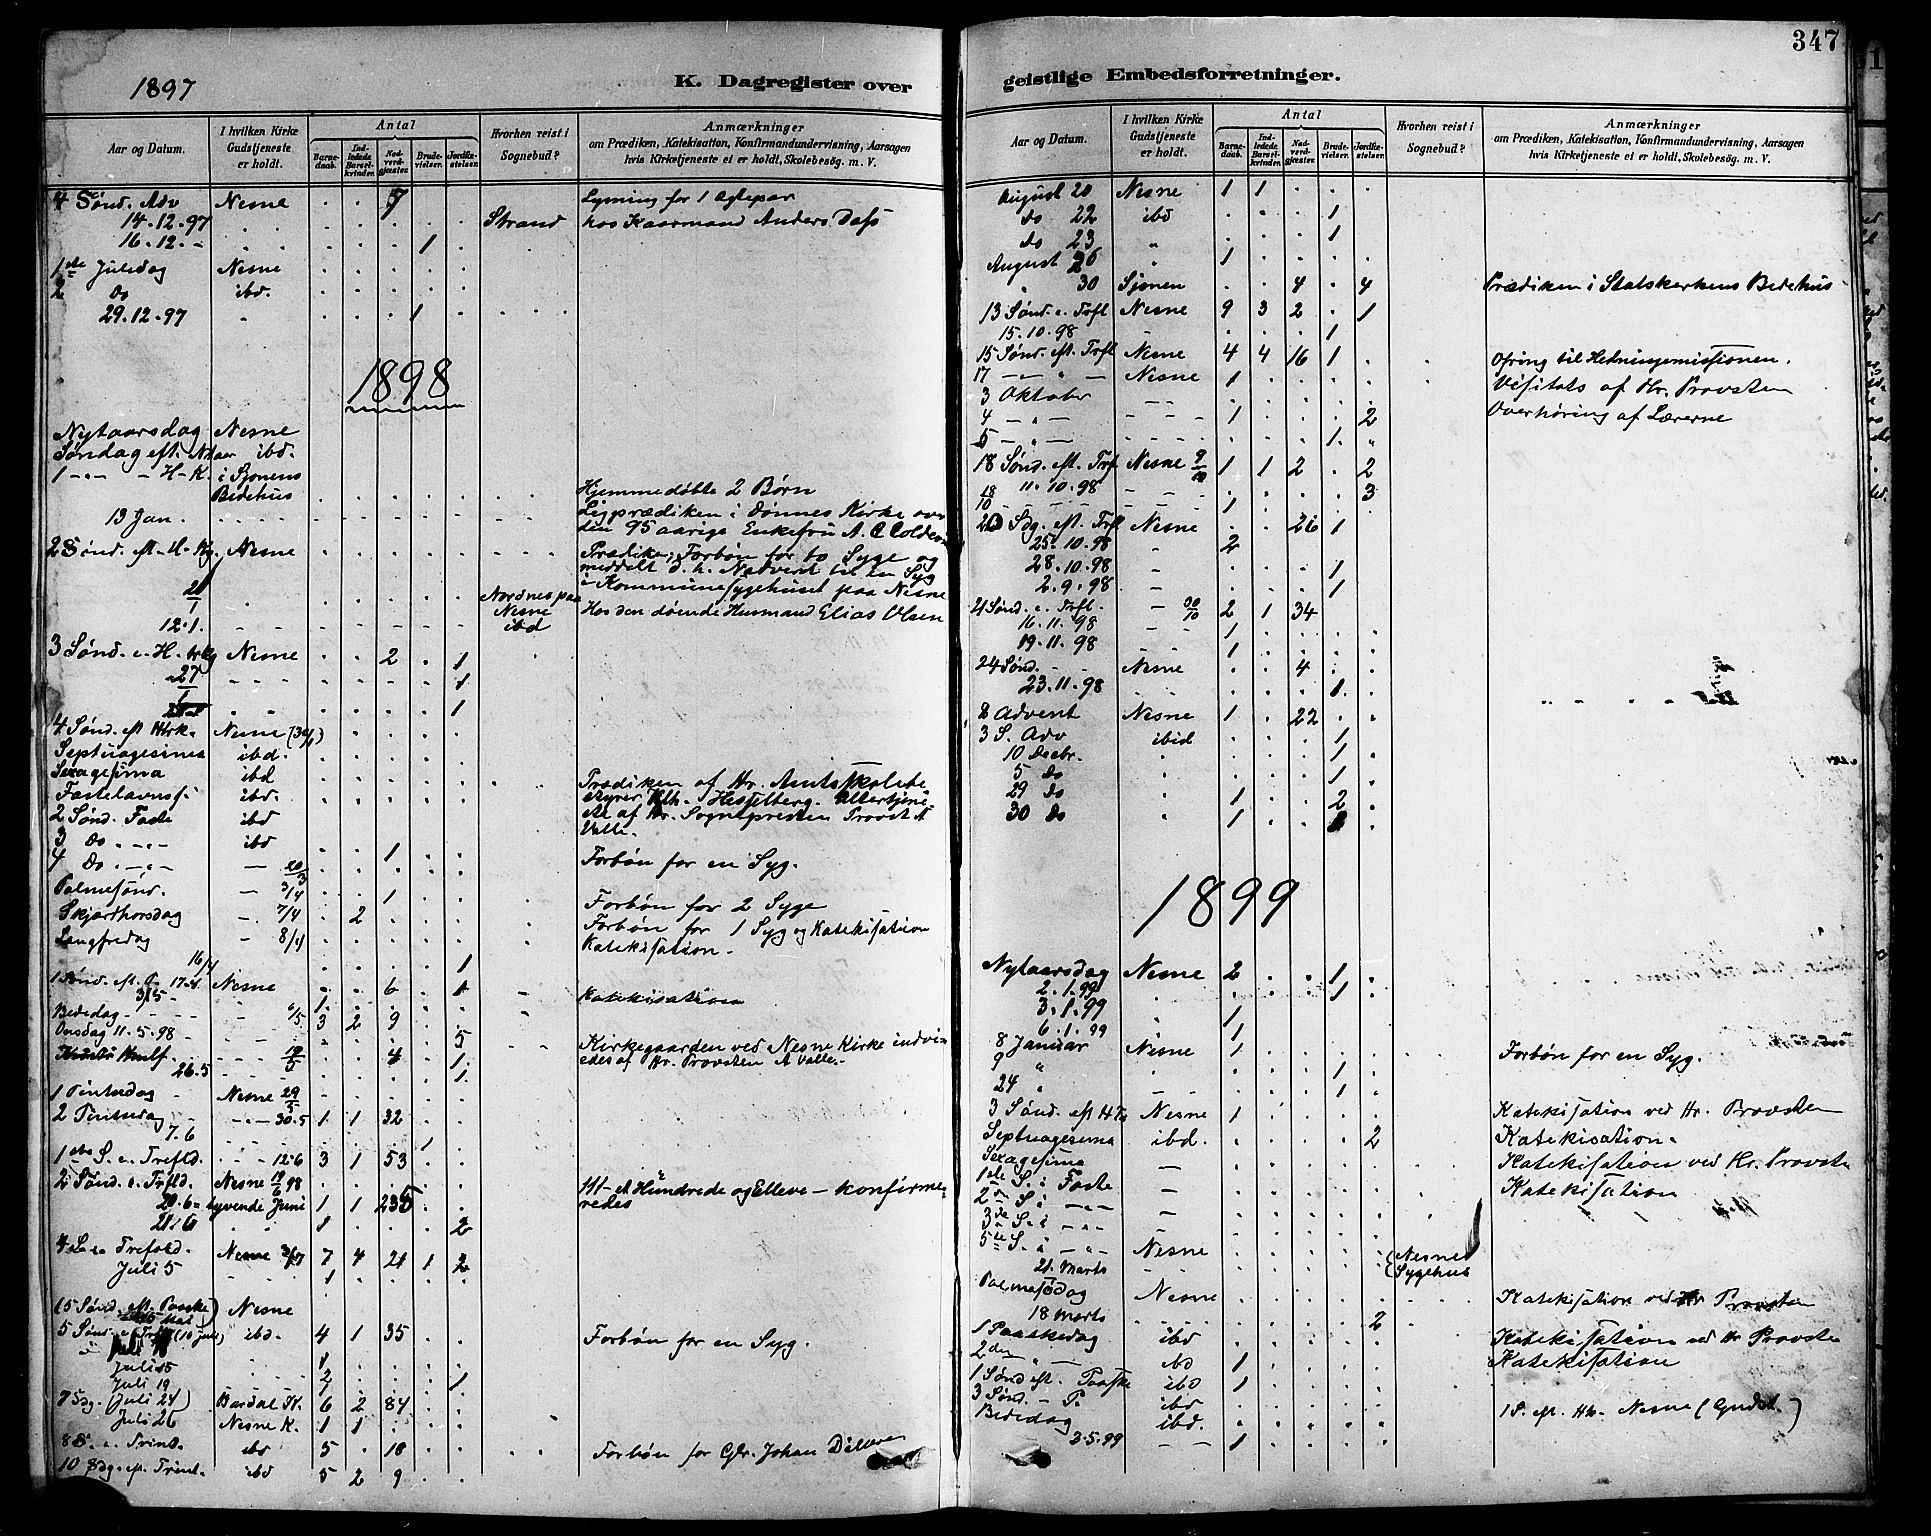 347
1897
K. Dagregister over
Aar og Datum.
I hvilken Kirke Gudstjeneste er holdt.
Antal
Barnedaab.
Indledede Barselkvinder.
Nadverdgjæster.
Brudevielser.
Jordfæstelser.
Hvorhen reist i Sognebud?
Anmærkninger
om Prædiken, Katekisation, Konfirmandundervisning, Aarsagen
hvis Kirketjeneste ei er holdt, Skolebesøg. m. V.
4 Sønd. Adv Nesne . . 7 Lysning for 1 Ægtepar
14.12.97 Strand hos Kaarmand Anders Dass
16.12.- 1
1ste Juledag Nesne
2 Do ibd.
29.12.97 1
1898
Nytaarsdag Nesne
Søndag eft. Nytaar ibd.
1 -"- - H-K. i Sjonens
Bedehus Hjemmedøbte 2 Børn
13 Jan. Ligprædiken i Dønnes Kirke over
den 95 aarige Enkefru A. C Coldevin
2 Sønd. eft. H. Kg. Nesne Prædiken, Forbøn for to Syge og
meddelt d. h. Nadverd til en Syg
i Kommunesygehuset paa Nesne
Nordnes paa
Nesne Hos den døende Husmand Elias Olsen
12.1. ibd
3 Sønd. e. H. trkg Nesne 2 1
27/1 1
1
4 Sønd. eft Htrk. Nesne (30/1)
Septuagesima ibd.
Sexagesima ibd
Fastelavnss. ibd. Prædiken af Hr. Amtsskolebe-
styrer Hesselberg. Altertjene-
2 Sønd. Faste ibd ste af Hr. Sognepresten Provst A
3 Do -"- ibd Valle.
4 Do -"- 20/3 1 Forbøn for en Syg.
Palmesønd. 3/4 1 Forbøn for 2 Syge
Skjærthorsdag 7/4 2 Forbøn for 1 Syg og Katekisation
Langfredag 8/4 Katekisation.
16/4 1
1 Sønd. eft. P. 17-4 Nesne 6 1 Katekisation
3/5 1
Bededag 6/5 3 2 9
Onsdag 11.5.98 5 Kirkegaarden ved Nesne Kirke indvi-
Kristi Himlf. 19/5 4 1 edes af Hr. Provsten A Valle.
26.5 1
1 Pintsedag Nesne 29/5
2 Pintsedag 30.5 1 1 32
7.6 1
1ste S. e. Trefld. 12-6 3 1 53
2 Sønd. e. Trfld. Nesne 19/6 98 111 - et Hundrede og Elleve - konfirme-
20.6 = tyvende Juni 1 1 235 redes
21/6 1 2
4 S. e. Trefold. Nesne 3/7 7 4 21 1 2
Juli 5 1
(5 Sønd. eft. Paaske) Nesne
5 Sønd. e. Trfl (10 juli) ibd. 4 1 35 Forbøn for en Syg.
Juli 15 1
Juli 19 2 1
7 Sdg. (Juli 24) Bardal K. 6 2 84
Juli 26 Nesne K. 1 1
8 S. e. Trint. ibd 5 . 18 Forbøn for Johan
10 Sdg. eft. Trint. ibd 5 2 9
geistlige Embedsforretninger.
Aar og Datum.
I hvilken Kirke Gudstjeneste er holdt.
Antal
Barnedaab.
Indledede Barselkvinder.
Nadverdgjæster.
Brudevielser.
Jordfæstelser.
Hvorhen reist i Sognebud?
Anmærkninger
om Prædiken, Katekisation, Konfirmandundervisning, Aarsagen
hvis Kirketjeneste ei er holdt, Skolebesøg. m. V.
August 20 Nesne 1 1
do 22 ibd 1
do 23 " 1
August 26 " 1
30 Sjonen 4 4 Prædiken i Statskerkens Bedehus
13 Sønd. e. Trfl Nesne 9 3 2 . 1
15.10.98 1
15 Sønd. eft. Trfl Nesne 4 4 16 1 Ofring til Hedningemissionen.
17 - " - Nesne 1 Visitats af Hr. Provsten
3 Oktober Overhøring af Lærerne
4 - " - 1 2
5 - " - 1
18 Sønd. eft. Trf Nesne 9/10 1 1 2 . 2
11.10.98 3
18/10 1
20 Sdg. eft. Trf Nesne 26 1
25.10.98 2
28.10.98 1
2.9.98 1
21 Sønd. e. Trfl. 30/10 2 1 34
16.11.98 1
19.11.98 1
24 Sønd. Nesne 4
23.11.98 1
2 Advent Nesne 1 . 22
3 S. Adv ibid 1
10 Decbr. 1
5 do 1
29 do 1 2
30 do 1
1899
Nytaarsdag Nesne 2 1
2.1.99 1
3.1.99 1
6.1.99 1
8 Januar Nesne 1 Forbøn for en Syg.
9 " 1
24 " 1
3 Sønd. eft H Tr Nesne 1 Katekisation ved Hr. Provsten
Septuagesima ibd. 2 Katekisation.
Sexagesima - Katekisation ved Hr. Provsten
1ste S. i Faste - Katekisation
2 S. i - " -
3de S. i - " -
5te S. i - " - Nesne
21. Marts Nesne Sygehus
Palmesødag Nesne Katekisation ved Hr Provsten
18 Marts 2
1 Paaskedag ibd Katekisation ved Hr Provsten
2den - " - ibd 1 Katekisation
1 Sønd eft. Paaske ibd 1
3 Sønd. - P. ibd 1 S. eft. Nesne (Gudst.)
Bededag ibd.
3.5.99 1